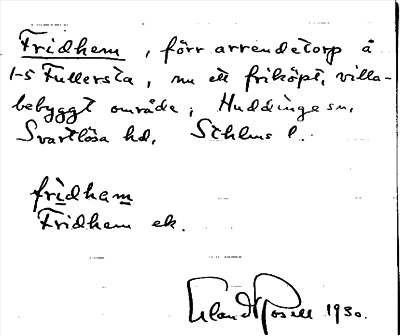 Fridhem, förr arrendetorp å
1-5 Fullersta, nu ett friköpt, villa-
bebyggt område; Huddinge sn,
Svartlösa hd, Sthlms l.
fridham
Fridhem ek.
Erland Rosell 1930.